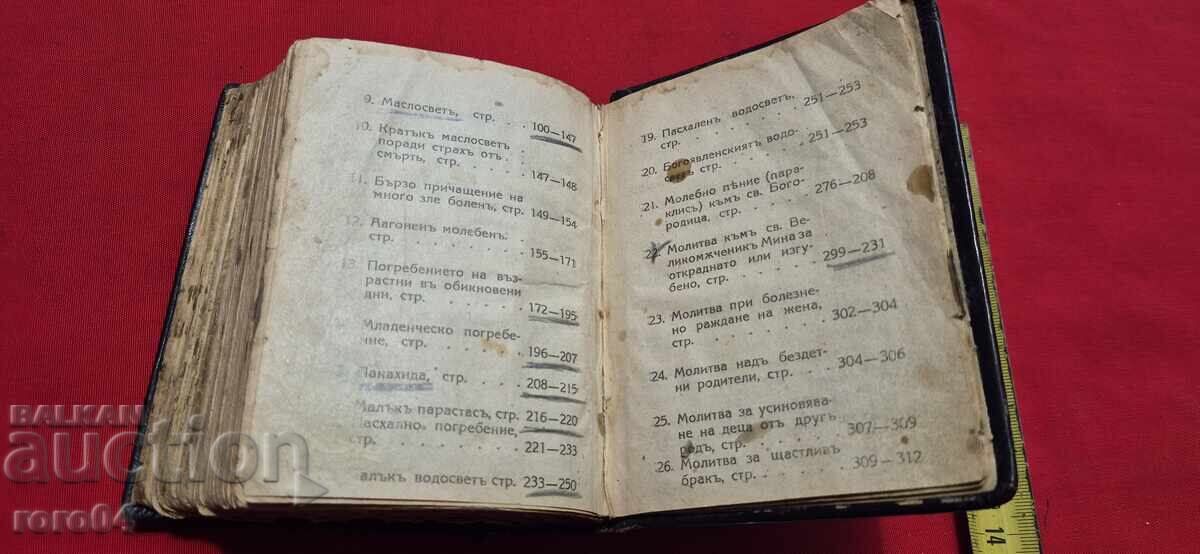 9. Маслосветъ, стр. . . 100—147
10. Кратъкъ маслосветъ .
поради страхъ отъ . .
смърть, стр. . . . . 147—148
11. Бързо причащение на
много зле боленъ, стр. 149—154
12. Агоненъ молебенъ. .
стр. . . . . . . . 155—171
13. Погребението на въз-
растни въ обикновени
дни, стр. . . . . . 172—195
Младенческо погребе-
ние, стр. . . . . . 196—207
Панахида, стр. . . . . 208—215
Малъкъ парастасъ, стр. 216—220
Пасхално погребение,
стр. . . . . . . . 221—233
алъкъ водосветъ стр. 233—250
19. Пасхаленъ водосветъ,
стр. . . . . . . . 251—253
20. Богоявленскиятъ водо-
стр. . . . . . . 251—253
21. Молебно пѣние (пара-
клисъ) къмъ св. Бого-
родица, стр. . . . . 276—208
22. Молитва къмъ св. Ве-
ликомѫченикъ Мина за
откраднато или изгу-
бено, стр. . . . . . 299—231
23. Молитва при болезне-
но раждане на жена,
стр. . . . . . . . 302—304
24. Молитва надъ бездет-
ни родители, стр. . . 304—306
25. Молитва за усиновява-
не на деца отъ другъ
родъ, стр. . . . . . 307—309
26. Молитва за щастливъ
бракъ, стр. . . . . 309—312
BALKAN
auction
roro04
14